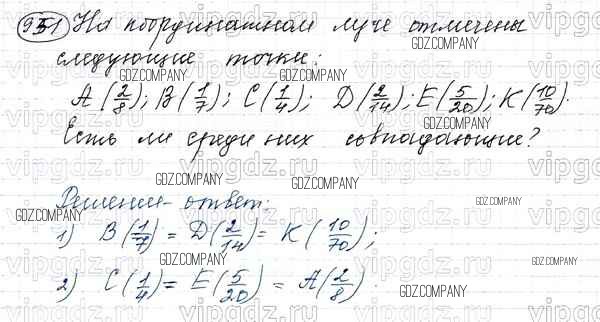 951 На координатном луче отмечены
следующие точки:
A(2/8); B(1/7); C(1/4); D(2/14); E(5/20); K(10/70).
Есть ли среди них совпадающие?
Решение-ответ:
1) B(1/7) = D(2/14) = K(10/70);
2) C(1/4) = E(5/20) = A(2/8).
GDZ.COMPANY
vipgdz.ru